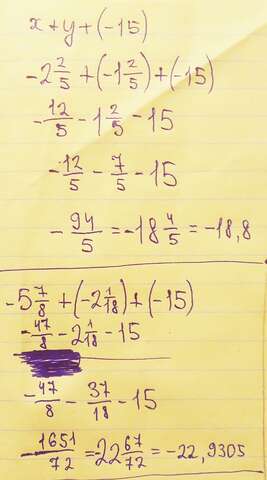 x + y + (-15)
-2 2/5 + (-1 2/5) + (-15)
-12/5 - 1 2/5 - 15
-12/5 - 7/5 - 15
-94/5 = -18 4/5 = -18,8
-5 7/8 + (-2 1/18) + (-15)
-47/8 - 2 1/18 - 15
-47/8 - 37/18 - 15
-1651/72 = -22 67/72 = -22,9305